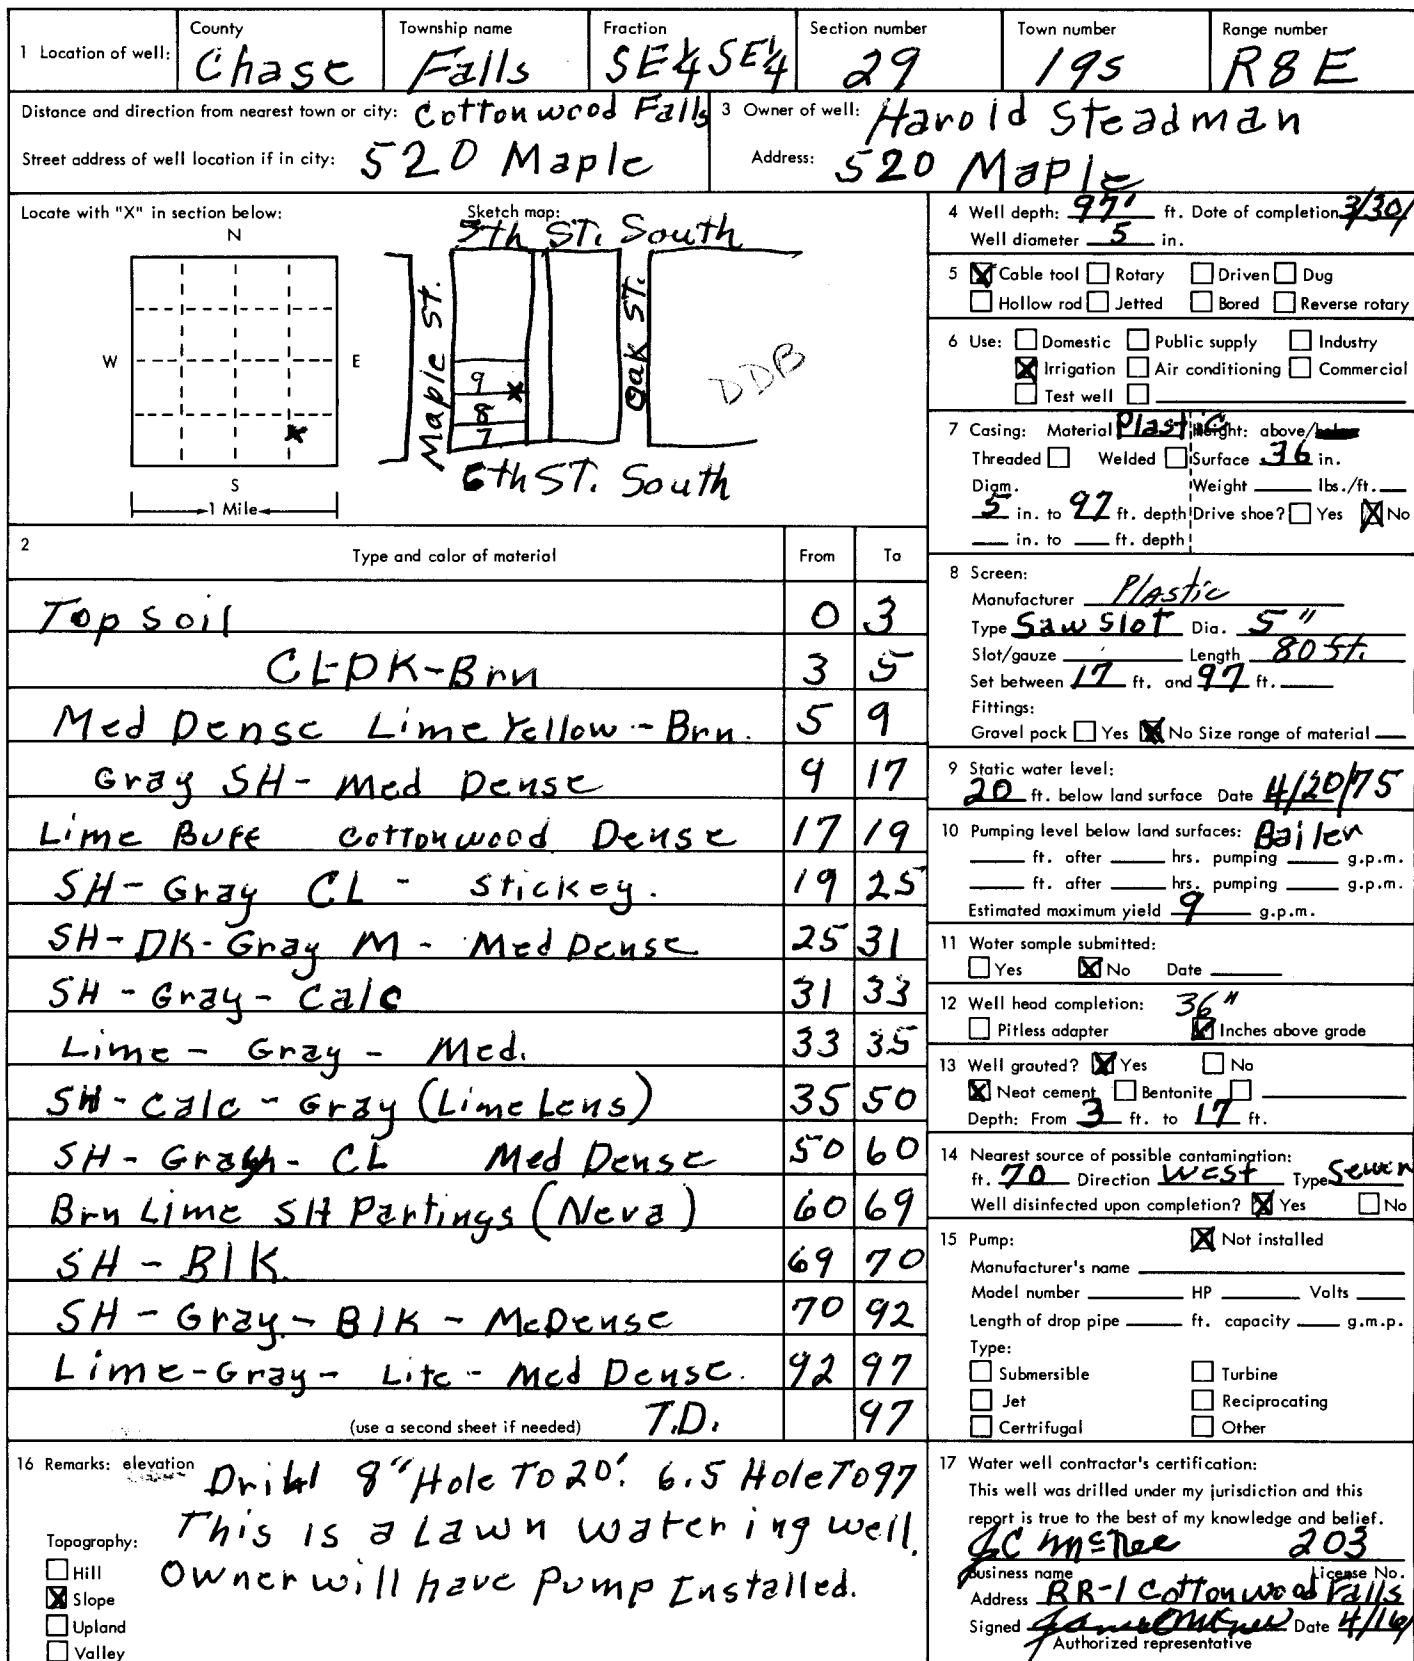 1 Location of well: County Township name Fraction Section number Town number Range number
Chase Falls SE¼ SE¼ 29 19s R8E
Distance and direction from nearest town or city: Cottonwood Falls
Street address of well location if in city: 520 Maple
3 Owner of well: Harold Steadman
Address: 520 Maple
Locate with "X" in section below:
N
W E
S
1 Mile
Sketch map:
5th ST. South
Maple St.
Oak ST.
9
8
7
6th ST. South
DDB
2 Type and color of material From To
Top Soil 0 3
CL-DK-Brn 3 5
Med Dense Lime Yellow - Brn. 5 9
Gray SH - Med Dense 9 17
Lime Buff Cottonwood Dense 17 19
SH - Gray CL - Stickey. 19 25
SH - DK - Gray M - Med Dense 25 31
SH - Gray - Calc 31 33
Lime - Gray - Med. 33 35
SH - Calc - Gray (Lime Lens) 35 50
SH - Gray - CL Med Dense 50 60
Brn Lime SH Partings (Neva) 60 69
SH - Blk. 69 70
SH - Gray - Blk - McDense 70 92
Lime - Gray - Lite - Med Dense. 92 97
(use a second sheet if needed) T.D. 97
16 Remarks: elevation Drill 8" Hole To 20'. 6.5 Hole To 97
This is a Lawn watering well.
Owner will have Pump Installed.
Topography:
Hill
Slope
Upland
Valley
4 Well depth: 97' ft. Date of completion 3/30/
Well diameter 5 in.
5 Cable tool Rotary Driven Dug
Hollow rod Jetted Bored Reverse rotary
6 Use: Domestic Public supply Industry
Irrigation Air conditioning Commercial
Test well
7 Casing: Material Plastic Height: above/
Threaded Welded Surface 36 in.
Diam. Weight lbs./ft.
5 in. to 97 ft. depth Drive shoe? Yes No
in. to ft. depth
8 Screen:
Manufacturer Plastic
Type Saw Slot Dia. 5"
Slot/gauze Length 80 ft.
Set between 17 ft. and 97 ft.
Fittings:
Gravel pack Yes No Size range of material
9 Static water level:
20 ft. below land surface Date 4/20/75
10 Pumping level below land surfaces: Bailer
ft. after hrs. pumping g.p.m.
ft. after hrs. pumping g.p.m.
Estimated maximum yield 9 g.p.m.
11 Water sample submitted:
Yes No Date
12 Well head completion: 36"
Pitless adapter Inches above grade
13 Well grouted? Yes No
Neat cement Bentonite
Depth: From 3 ft. to 17 ft.
14 Nearest source of possible contamination:
ft. 70 Direction West Type Sewer
Well disinfected upon completion? Yes No
15 Pump: Not installed
Manufacturer's name
Model number HP Volts
Length of drop pipe ft. capacity g.m.p.
Type:
Submersible Turbine
Jet Reciprocating
Certrifugal Other
17 Water well contractor's certification:
This well was drilled under my jurisdiction and this
report is true to the best of my knowledge and belief.
203
Business name License No.
Address RR-1 Cottonwood Falls
Signed Date 4/16/
Authorized representative